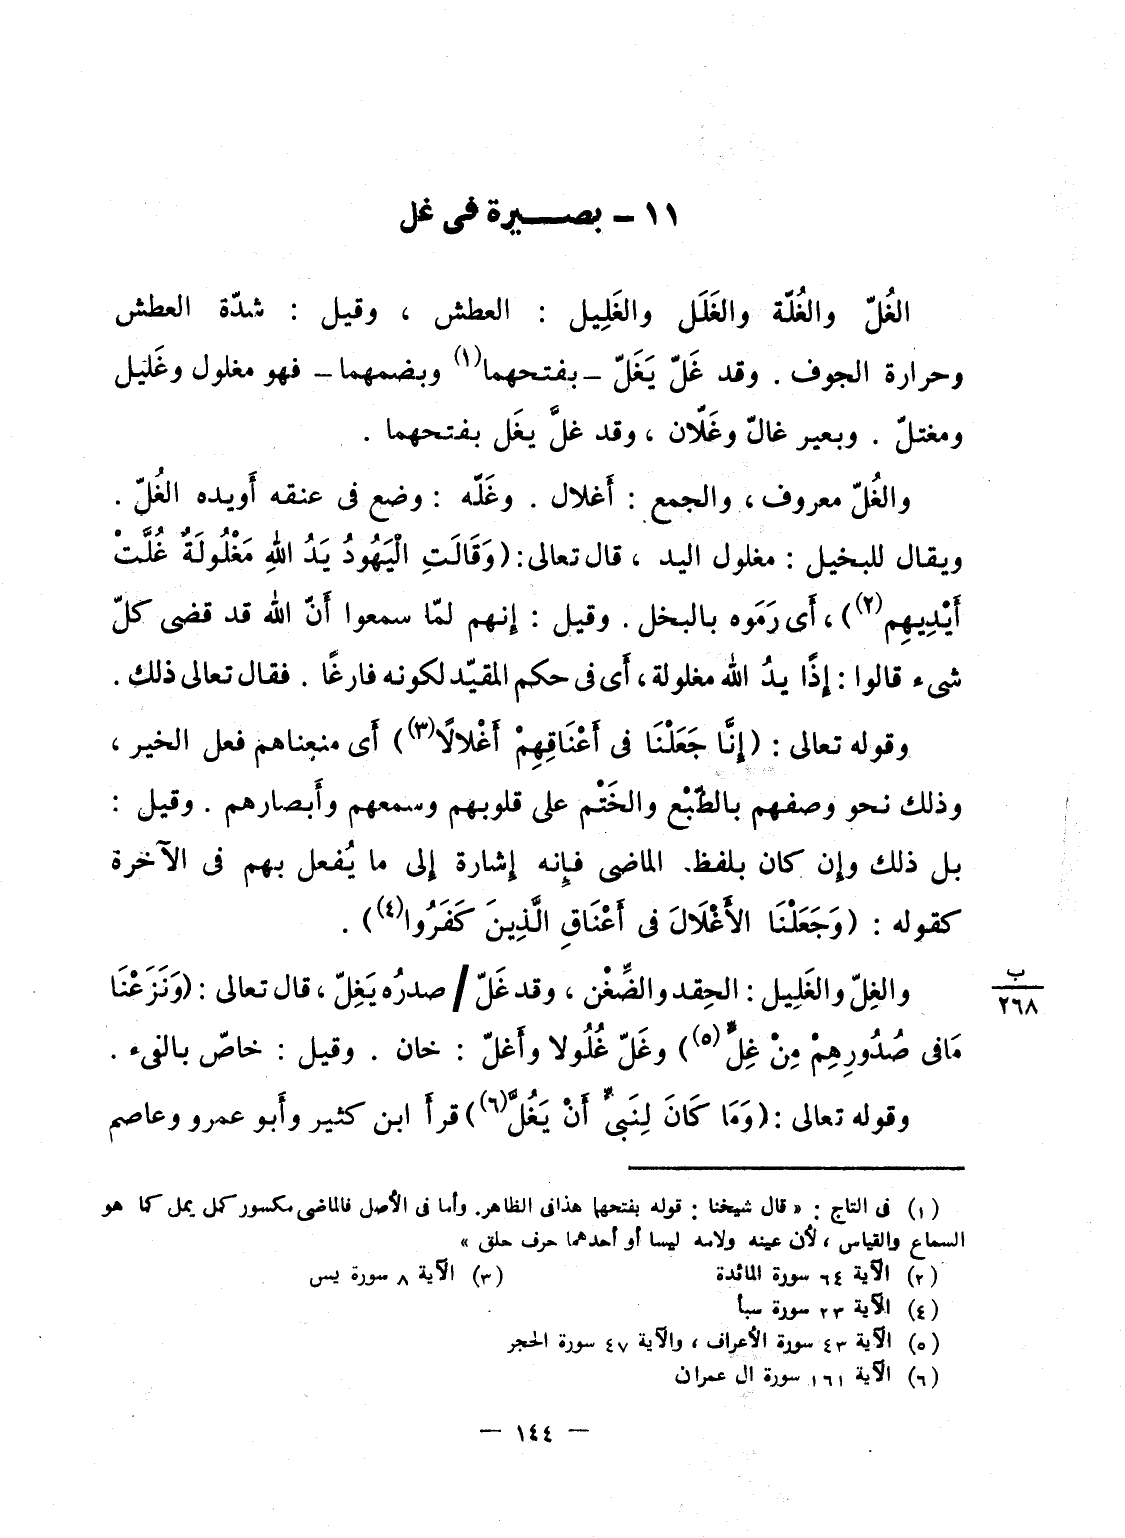 ١١ – بصيرة فى غل
الغُلّ والغُلّة والغَلَل والغَلِيل : العطش ، وقيل : شدّة العطش
وحرارة الجوف . وقد غَلّ يَغَلّ – بفتحهما(١) وبضمهما – فهو مغلول وغَليل
ومغتلّ . وبعير غالّ وغَلّان ، وقد غلَّ يغَل بفتحهما .
والغُلّ معروف ، والجمع : أَغلال . وغَلّه : وضع فى عنقه أَويده الغُلّ .
ويقال للبخيل : مغلول اليد ، قال تعالى : (وَقَالَتِ الْيَهُودُ يَدُ اللهِ مَغْلُولَةٌ غُلَّتْ
أَيْدِيهِم(٢)) ، أَى رَمَوه بالبخل . وقيل : إنهم لمّا سمعوا أَنّ الله قد قضى كلّ
شىء قالوا : إذًا يدُ الله مغلولة ، أَى فى حكم المقيّد لكونه فارغًا . فقال تعالى ذلك .
وقوله تعالى : (إِنَّا جَعَلْنَا فى أَعْنَاقِهِمْ أَغْلالًا(٣)) أَى منعناهم فعل الخير ،
وذلك نحو وصفهم بالطَّبْع والخَتْم على قلوبهم وسمعهم وأَبصارهم . وقيل :
بل ذلك وإن كان بلفظ الماضى فإنه إشارة إلى ما يُفعل بهم فى الآخرة
كقوله : (وَجَعَلْنَا الأَغْلَالَ فى أَعْنَاقِ الَّذِينَ كَفَرُوا(٤)) .
والغِلّ والغَلِيل : الحِقد والضِّغْن ، وقد غَلّ / صدرُه يَغِلّ ، قال تعالى : (وَنَزَعْنَا
ب
٢٦٨
مَافى صُدُورِهِمْ مِنْ غِلٍّ(٥)) وغَلّ غُلُولا وأَغلّ : خان . وقيل : خاصّ بالفىء .
وقوله تعالى : (وَمَا كَانَ لِنَبِىٍّ أَنْ يَغُلَّ(٦)) قرأَ ابن كثير وأَبو عمرو وعاصم
(١) فى التاج : « قال شيخنا : قوله بفتحهما هذا فى الظاهر. وأما فى الأصل فالماضى مكسور كمل يمل كما هو
السماع والقياس ، لأن عينه ولامه ليسا أو أحدهما حرف حلق »
(٢) الآية ٦٤ سورة المائدة (٣) الآية ٨ سورة يس
(٤) الآية ٢٣ سورة سبأ
(٥) الآية ٤٣ سورة الأعراف ، والآية ٤٧ سورة الحجر
(٦) الآية ١٦١ سورة ال عمران
— ١٤٤ —